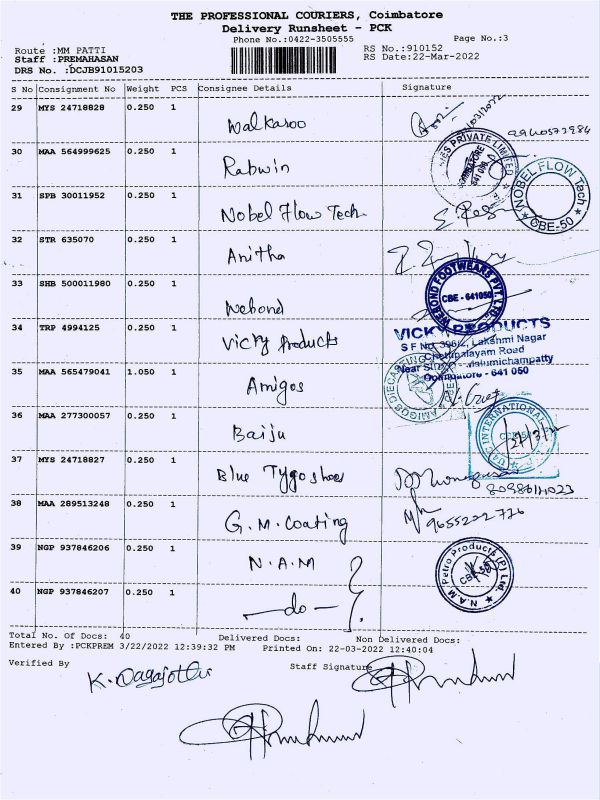 THE PROFESSIONAL COURIERS, Coimbatore
Delivery Runsheet - PCK
Phone No.:0422-3505555
Page No.:3
Route :MM PATTI
RS No.:910152
Staff :PREMAHASAN
RS Date:22-Mar-2022
DRS No. :DCJB91015203
S No Consignment No Weight PCS Consignee Details Signature
29 MYS 24718828 0.250 1 Walkaroo
9940573984
30 MAA 564999625 0.250 1 Rabwin
PRIVATE LIMITED
COIMBATORE
641 050
31 SPB 30011952 0.250 1 Nobel Flow Tech
NOBEL FLOW Tech
CBE-50
32 STR 635070 0.250 1 Anitha
33 SHB 500011980 0.250 1 Webond
WEBOND FOOTWEARS PVT. LTD.
CBE - 641050
34 TRP 4994125 0.250 1 Vicky Products
VICKY PRODUCTS
S F No. 396/2, Lakshmi Nagar
Road
Coimbatore - 641 050
35 MAA 565479041 1.050 1 Amigos
AMIGOS DIECASTING
36 MAA 277300057 0.250 1 Baiju
INTERNATIONAL
37 MYS 24718827 0.250 1 Blue Tygoshoes
38 MAA 289513248 0.250 1 G.M. Coating
9655202776
39 NGP 937846206 0.250 1 N.A.M
N.A.M Petro Products (P) Ltd.
CBE-50
40 NGP 937846207 0.250 1 —do—
Total No. Of Docs: 40 Delivered Docs: Non Delivered Docs:
Entered By :PCKPREM 3/22/2022 12:39:32 PM Printed On: 22-03-2022 12:40:04
Verified By Staff Signature